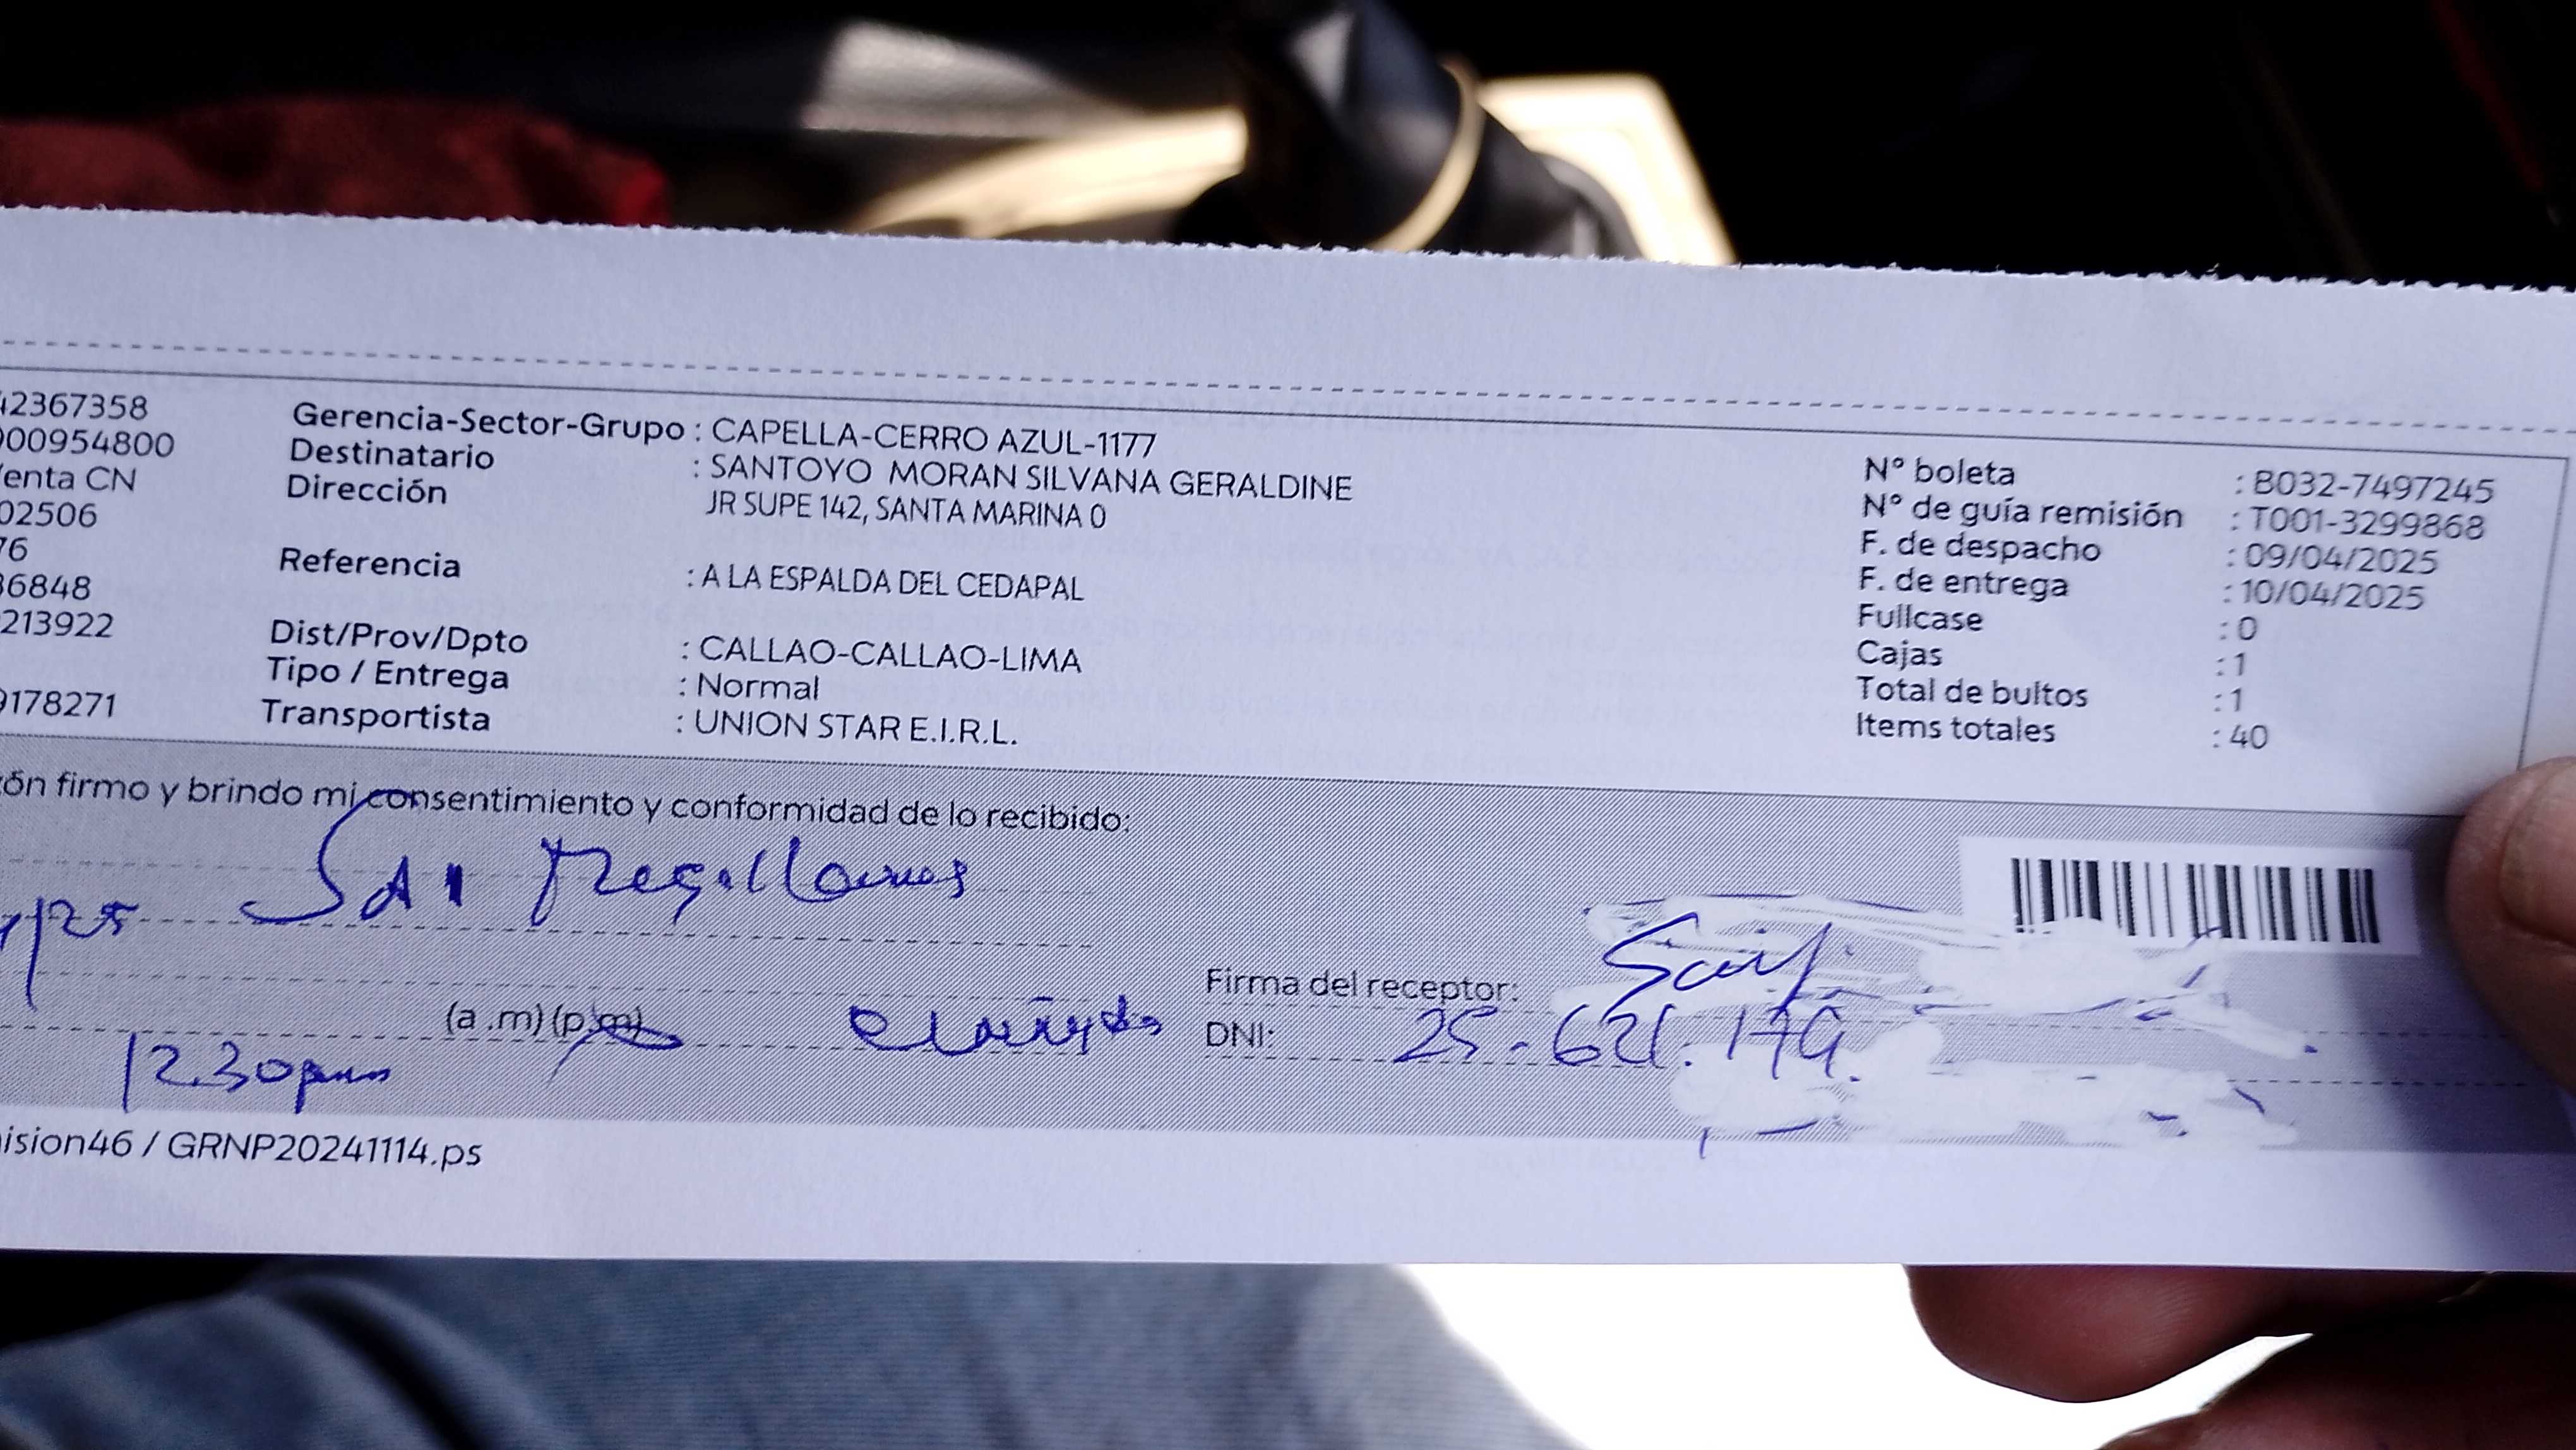 42367358
000954800
enta CN
02506
76
36848
213922
9178271
Gerencia-Sector-Grupo : CAPELLA-CERRO AZUL-1177
Destinatario : SANTOYO MORAN SILVANA GERALDINE
Dirección JR SUPE 142, SANTA MARINA 0
Referencia : A LA ESPALDA DEL CEDAPAL
Dist/Prov/Dpto : CALLAO-CALLAO-LIMA
Tipo / Entrega : Normal
Transportista : UNION STAR E.I.R.L.
N° boleta : B032-7497245
N° de guía remisión : T001-3299868
F. de despacho : 09/04/2025
F. de entrega : 10/04/2025
Fullcase : 0
Cajas : 1
Total de bultos : 1
Items totales : 40
firmo y brindo mi consentimiento y conformidad de lo recibido:
(a .m) (p.m)
12.30pm
Firma del receptor:
DNI: 25-621.179.
ision46 / GRNP20241114.ps